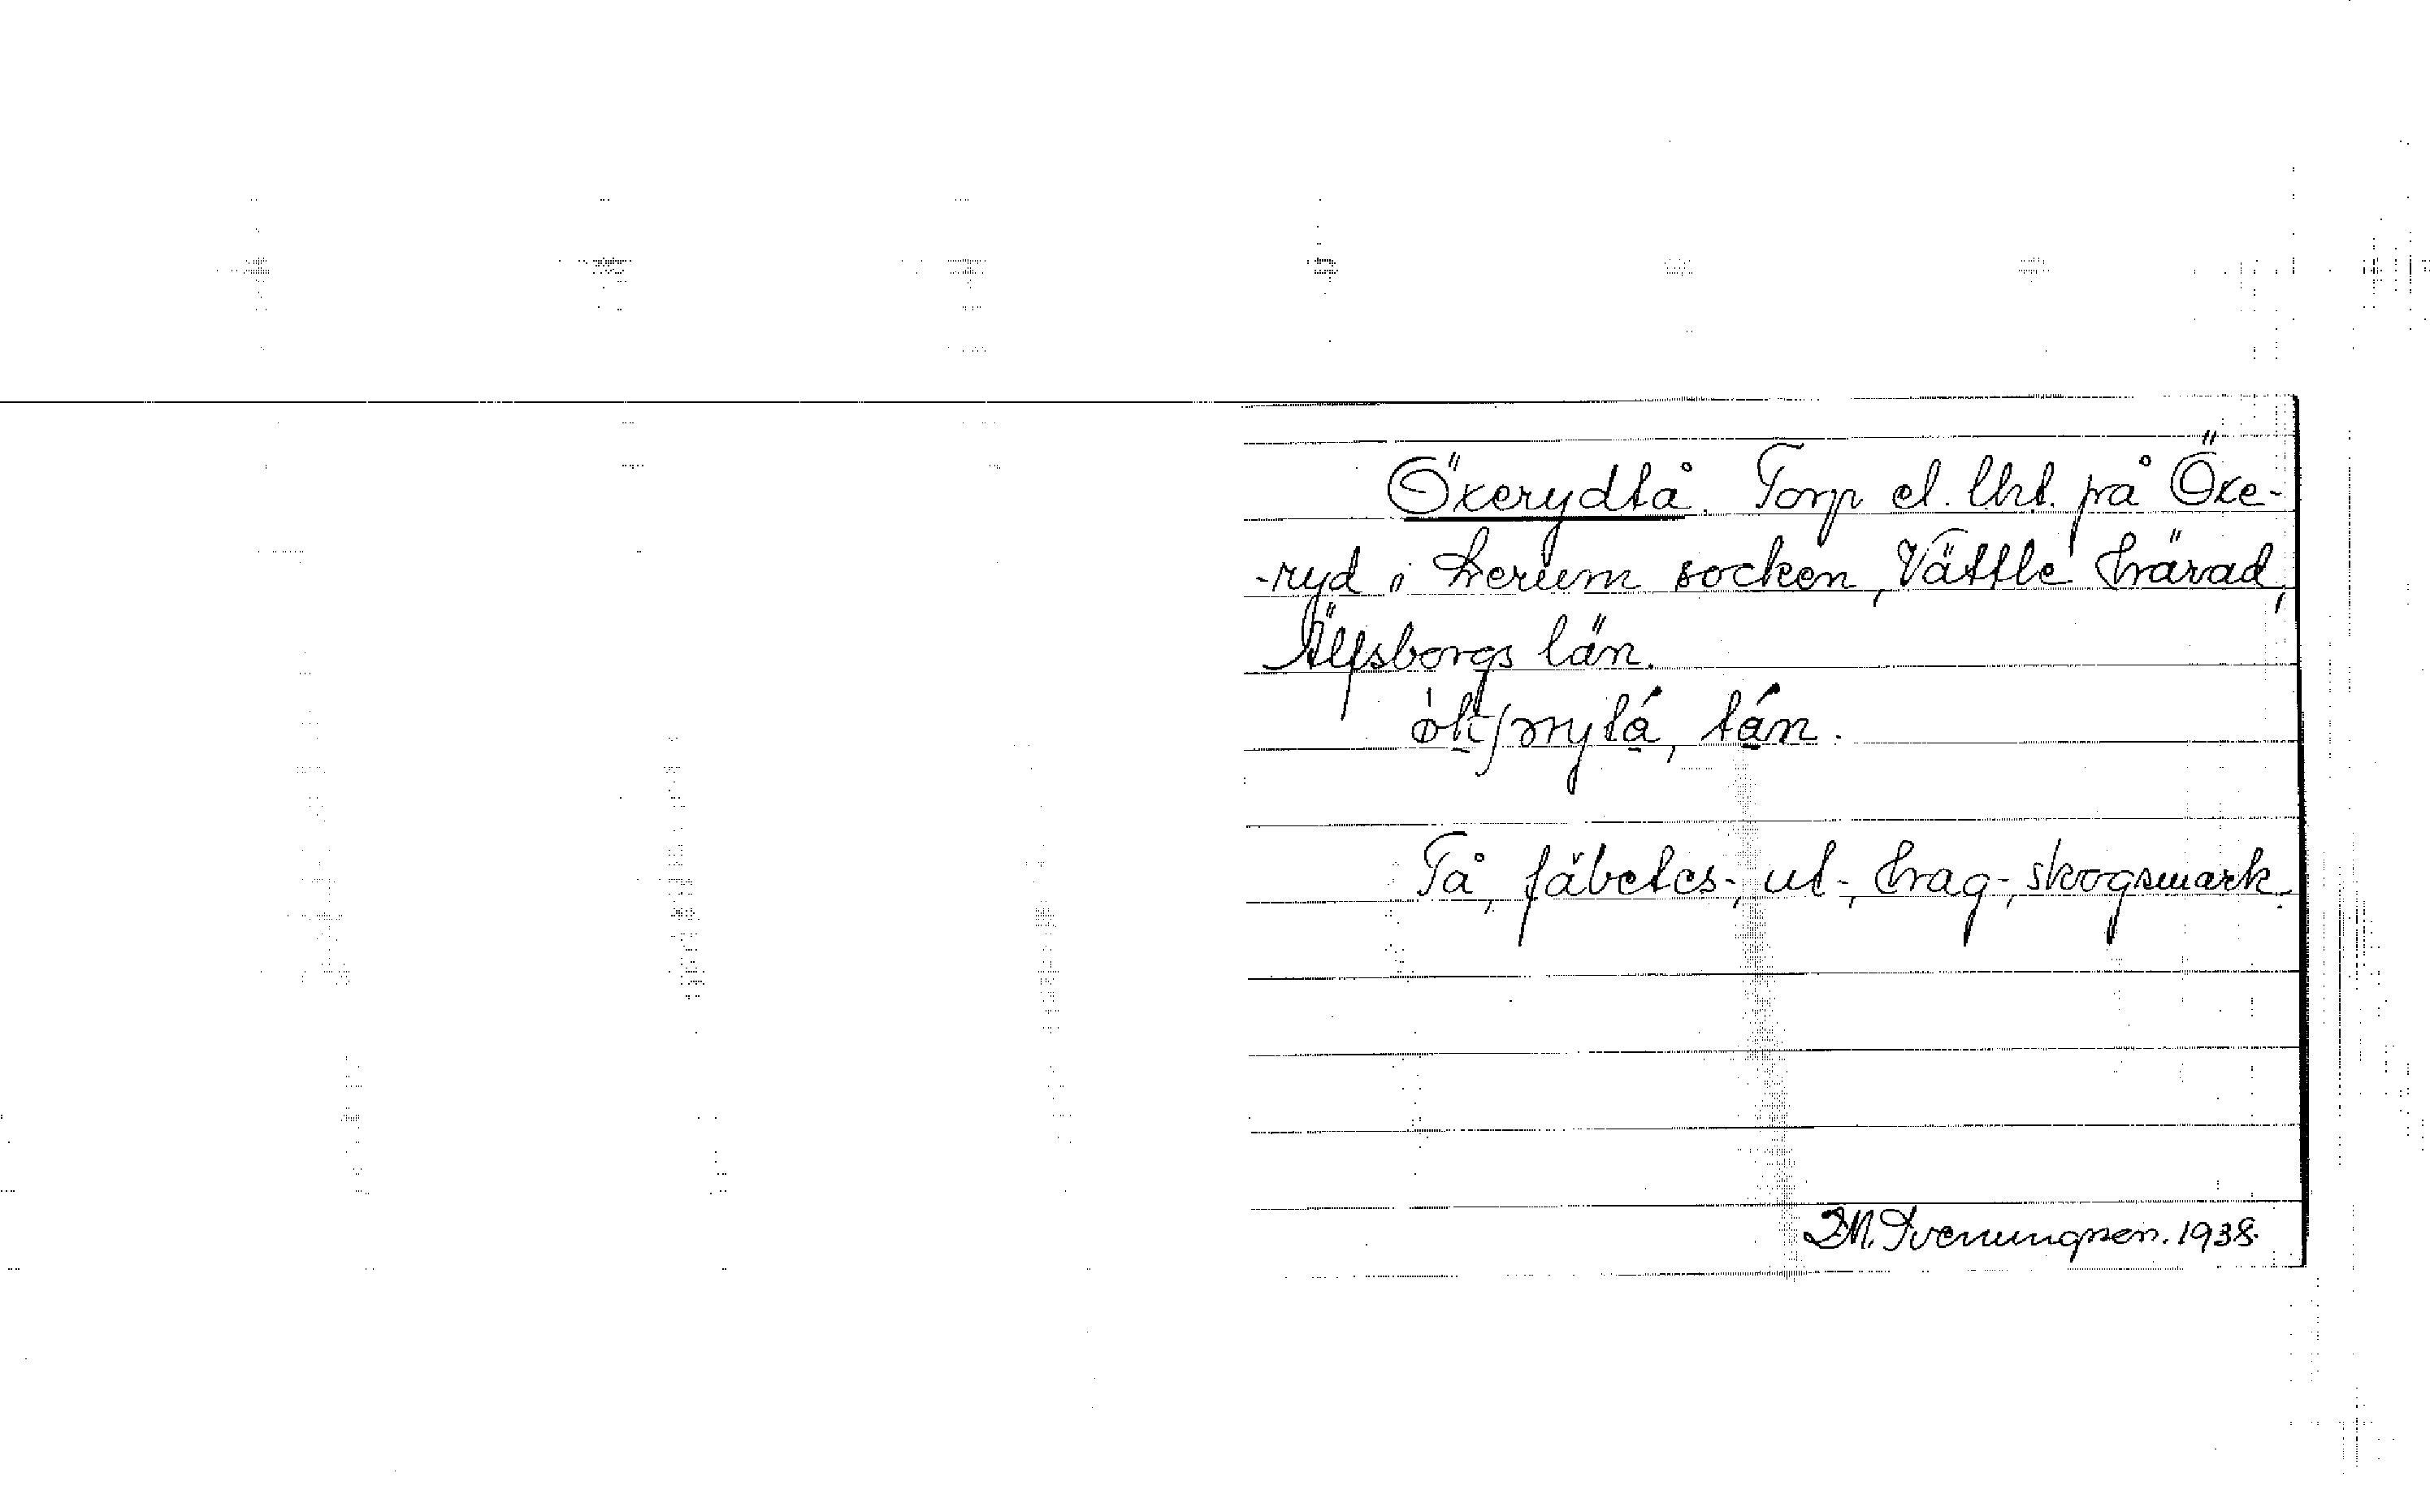 Öxerydtå. Torp el. lht. på Öxe-
-ryd i Lerum socken, Vättle härad,
Älfsborgs län.
tån.
Tå, fäbetes-, ut-, hag-, skogsmark.
D.M. Svenungsson. 1938.